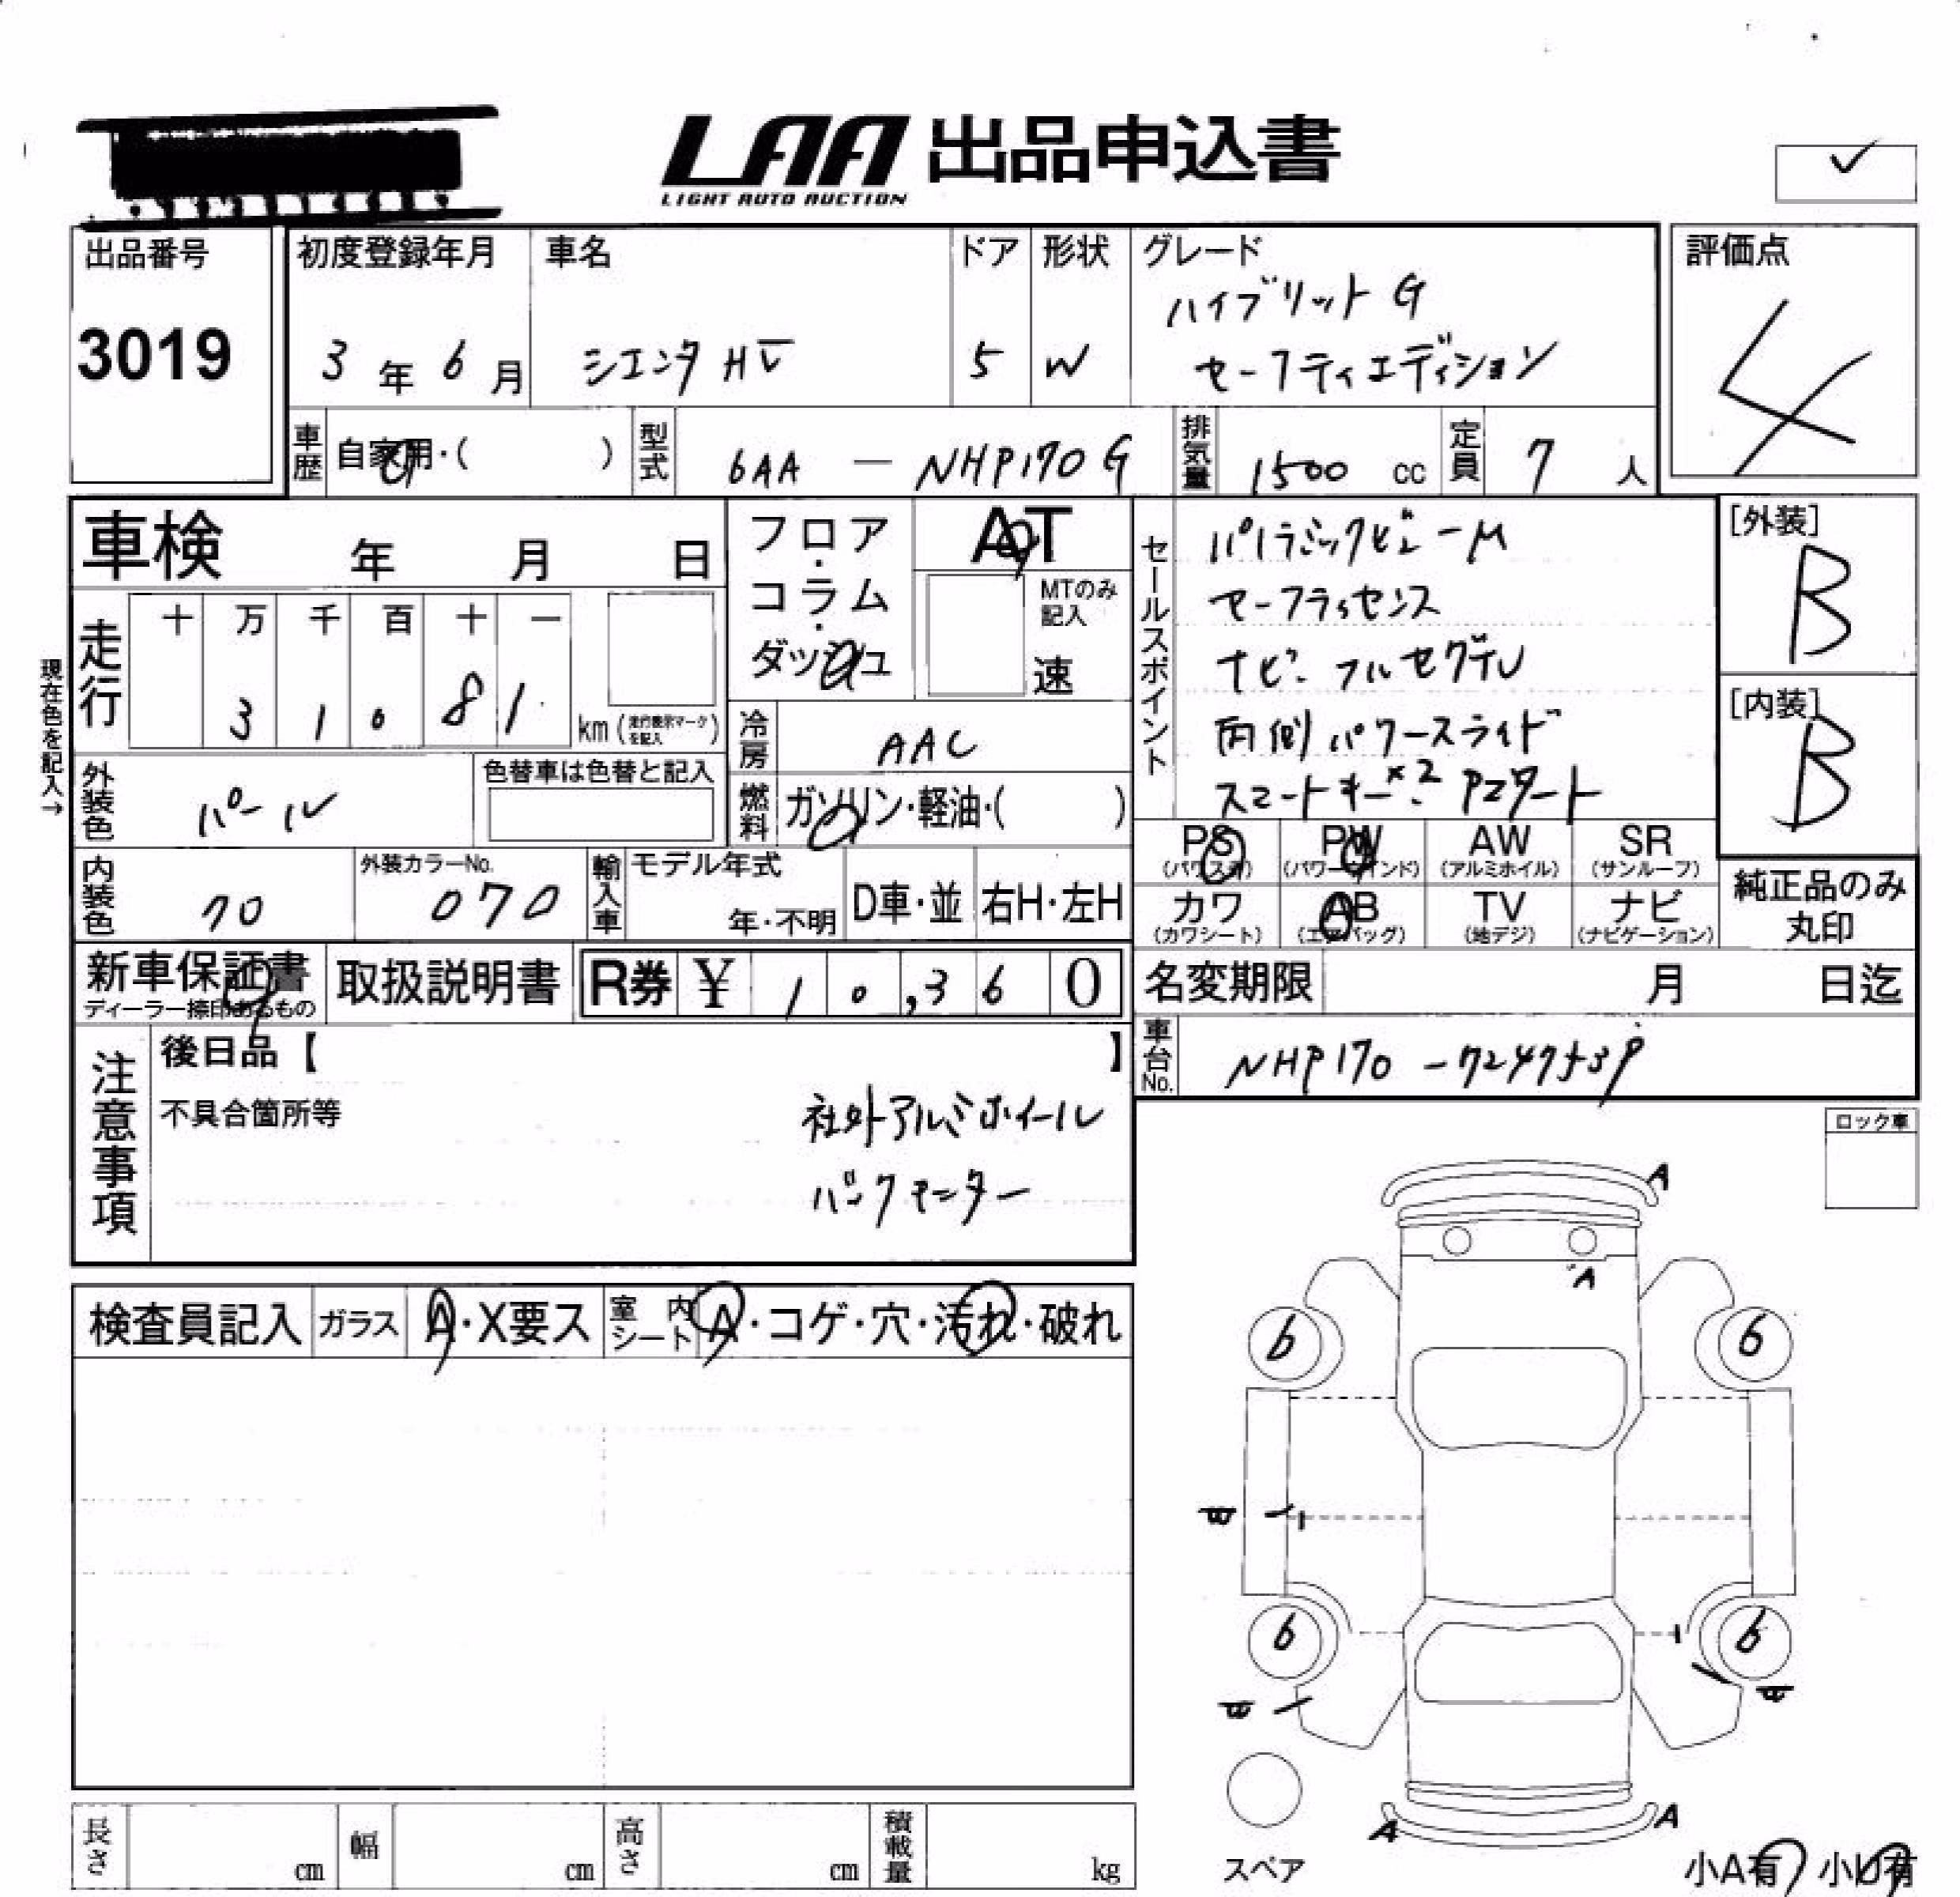 LAA 出品申込書
LIGHT AUTO AUCTION
出品番号
3019
初度登録年月
3年6月
車名
シエンタ HV
ドア
5
形状
W
グレード
ハイブリットG
セーフティエディション
評価点
4
車歴 自家用・( )
型式 6AA - NHP170G
排気量 1500 cc
定員 7人
車検 年 月 日
フロア・コラム・ダッシュ
AT
MTのみ記入
速
走行
十 万 千 百 十 一
3 1 0 8 1
km(走行表示マークを記入)
現在色を記入→
冷房 AAC
外装色 パール
色替車は色替と記入
燃料 ガソリン・軽油・( )
内装色 70
外装カラーNo.
070
輸入車 モデル年式
年・不明
D車・並
右H・左H
セールスポイント
パノラミックビューM
セーフティセンス
ナビ・フルセグTV
両側パワースライド
スマートキー×2 Pスタート
[外装]
B
[内装]
B
PS (パワステ)
PW (パワーウインド)
AW (アルミホイル)
SR (サンルーフ)
カワ (カワシート)
AB (エアバッグ)
TV (地デジ)
ナビ (ナビゲーション)
純正品のみ
丸印
新車保証書
ディーラー捺印あるもの
取扱説明書
R券 ¥ 10,360
名変期限 月 日迄
車台No.
NHP170 -
注意事項
後日品【 】
不具合箇所等
社外アルミホイール
バックモニター
ロック車
検査員記入
ガラス A・X要ス
室内シート A・コゲ・穴・汚れ・破れ
A
A
6 6
6 6
A A
スペア
小A有 小U有
長さ cm
幅 cm
高さ cm
積載量 kg